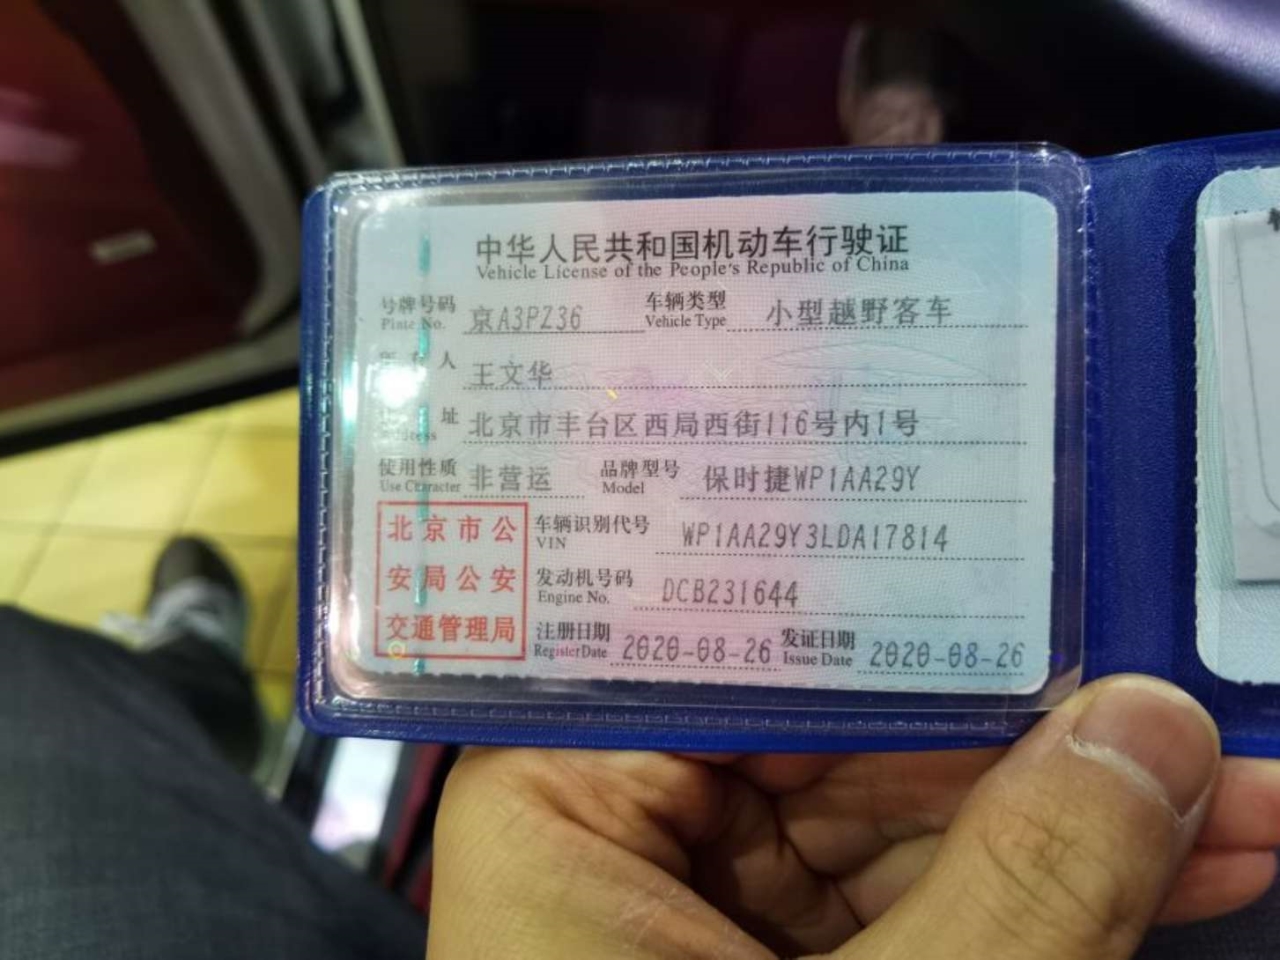 中华人民共和国机动车行驶证
Vehicle License of the People's Republic of China
号牌号码 京A3PZ36 车辆类型 小型越野客车
Plate No. Vehicle Type
人 王文华
址 北京市丰台区西局西街116号内1号
Address
使用性质 非营运 品牌型号 保时捷WP1AA29Y
Use Character Model
北京市公
安局公安
交通管理局
车辆识别代号 WP1AA29Y3LDA17814
VIN
发动机号码 DCB231644
Engine No.
注册日期 2020-08-26 发证日期 2020-08-26
Register Date Issue Date